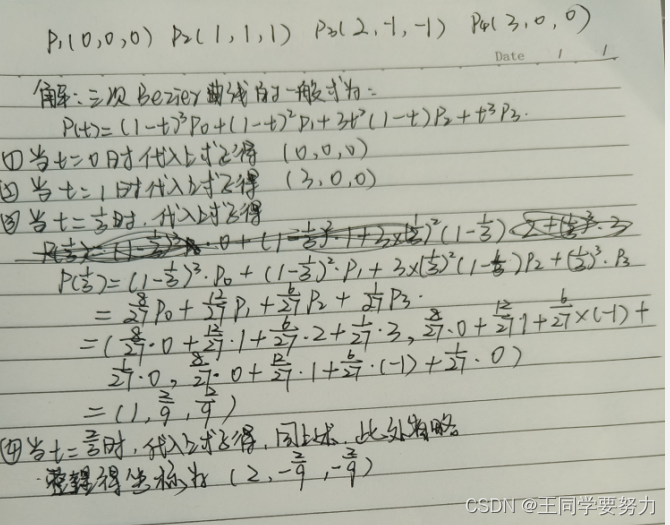 P₁(0,0,0) P₂(1,1,1) P₃(2,-1,-1) P₄(3,0,0)
Date 1 1
解:三次Bezier曲线的一般式为:
P(t)=(1-t)³P₀+(1-t)²P₁+3t²(1-t)P₂+t³P₃.
(1)当t=0时代入上式可得 (0,0,0)
(2)当t=1时代入上式可得 (3,0,0)
(3)当t=1/3时,代入上式可得
P(1/3)=(1-1/3)³·P₀+(1-1/3)²·P₁+3×(1/3)²(1-1/3)P₂+(1/3)³·P₃
=8/27P₀+12/27P₁+6/27P₂+1/27P₃.
=(8/27·0+12/27·1+6/27·2+1/27·3,8/27·0+12/27·1+6/27×(-1)+
1/27·0,8/27·0+12/27·1+6/27·(-1)+1/27·0)
=(1,2/9,2/9)
(4)当t=2/3时,代入上式可得,同上述,此处省略
整理得坐标为(2,-2/9,-2/9)
CSDN @王同学要努力